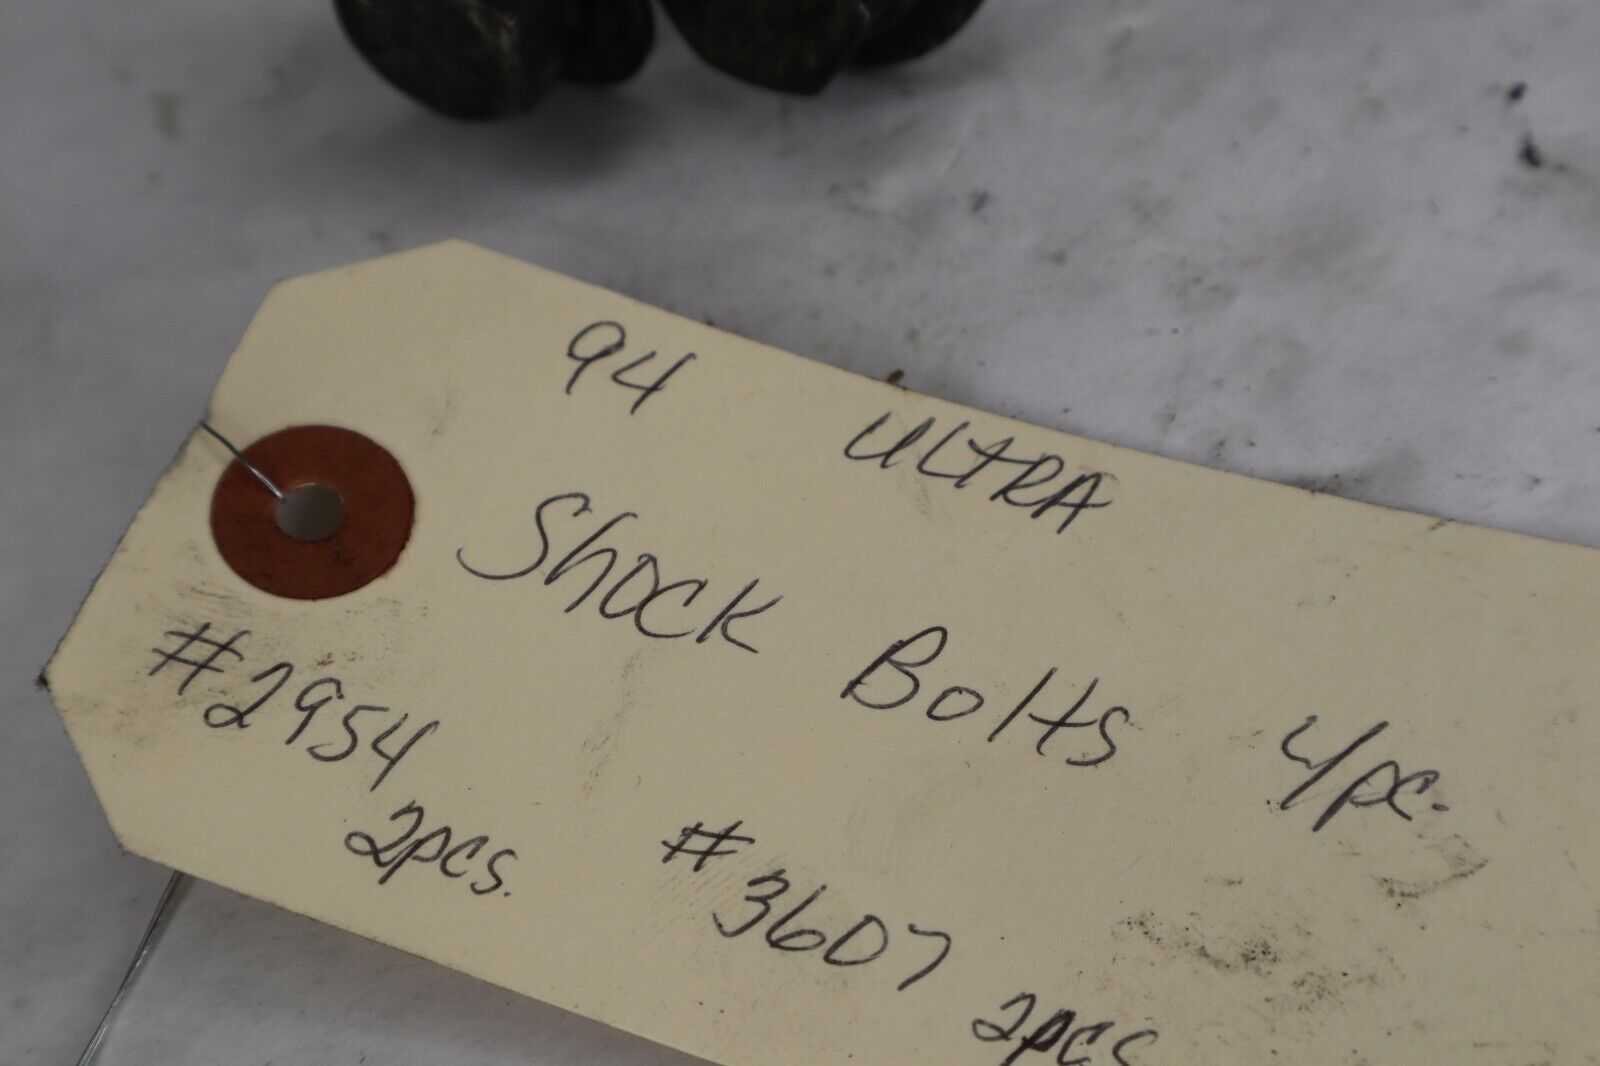 94 ULTRA
Shock Bolts 4/pc.
#2954
2pcs.
#3607
2pcs